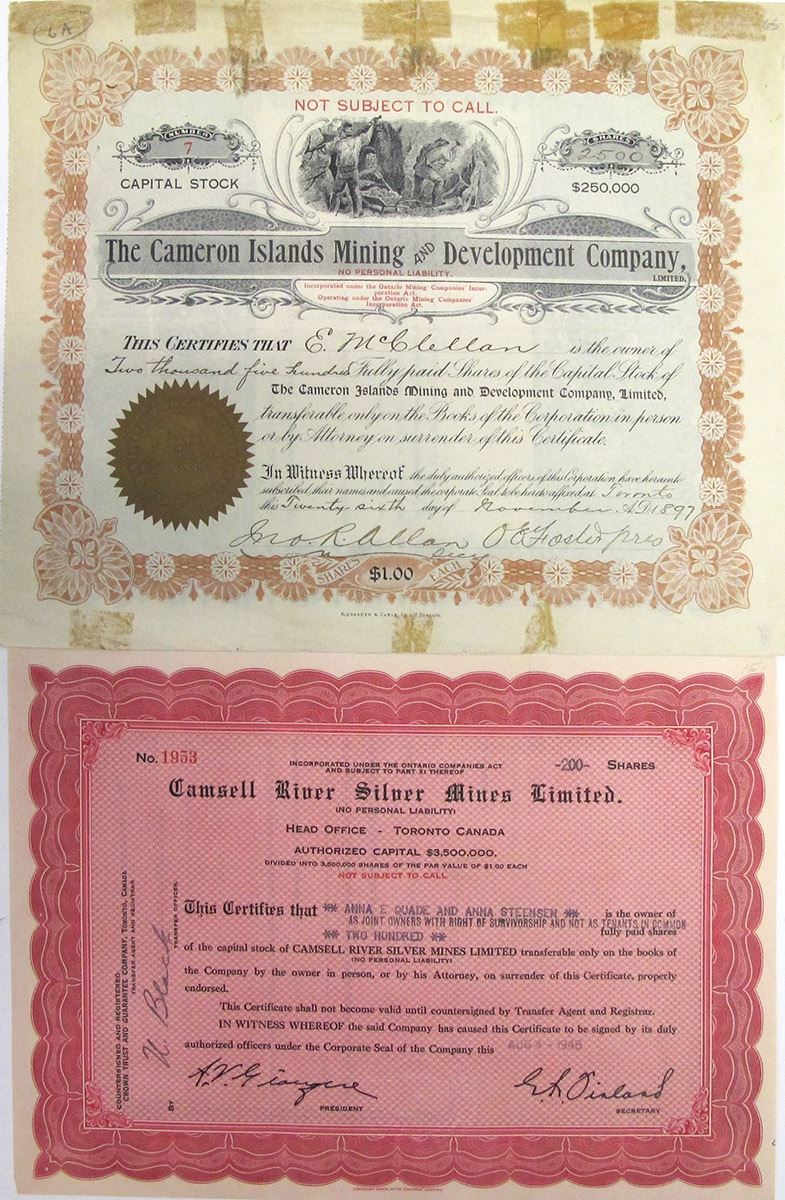 6A
NOT SUBJECT TO CALL.
NUMBER
7
SHARES
2500
CAPITAL STOCK
$250,000
The Cameron Islands Mining AND Development Company,
LIMITED.
NO PERSONAL LIABILITY.
Incorporated under the Ontario Mining Companies' Incor-
poration Act.
Operating under the Ontario Mining Companies'
Incorporation Act.
THIS CERTIFIES THAT E. McClellan is the owner of
Two thousand five hundred Fully paid Shares of the Capital Stock of
The Cameron Islands Mining and Development Company, Limited,
transferable only on the Books of the Corporation in person
or by Attorney on surrender of this Certificate.
In Witness Whereof the duly authorized officers of this Corporation have hereunto
subscribed their names and caused the corporate Seal to be hereto affixed at Toronto
this Twenty-sixth day of November A.D. 1897
Jno. R. Allan Secy
O E Foster pres
SHARES $1.00 EACH
ALEXANDER & CABLE, CO. LD. TORONTO.
No. 1953
INCORPORATED UNDER THE ONTARIO COMPANIES ACT
AND SUBJECT TO PART XI THEREOF
-200- SHARES
Camsell River Silver Mines Limited.
(NO PERSONAL LIABILITY)
HEAD OFFICE - TORONTO CANADA
AUTHORIZED CAPITAL $3,500,000.
DIVIDED INTO 3,500,000 SHARES OF THE PAR VALUE OF $1.00 EACH
NOT SUBJECT TO CALL
This Certifies that ** ANNA E QUADE AND ANNA STEENSEN ** is the owner of
AS JOINT OWNERS WITH RIGHT OF SURVIVORSHIP AND NOT AS TENANTS IN COMMON
** TWO HUNDRED ** fully paid shares
of the capital stock of CAMSELL RIVER SILVER MINES LIMITED transferable only on the books of
(NO PERSONAL LIABILITY)
the Company by the owner in person, or by his Attorney, on surrender of this Certificate, properly
endorsed.
This Certificate shall not become valid until countersigned by Transfer Agent and Registrar.
IN WITNESS WHEREOF the said Company has caused this Certificate to be signed by its duly
authorized officers under the Corporate Seal of the Company this AUG 4 - 1948
PRESIDENT
SECRETARY
COUNTERSIGNED AND REGISTERED
CROWN TRUST AND GUARANTEE COMPANY, TORONTO, CANADA
TRANSFER AGENT AND REGISTRAR
BY
TRANSFER OFFICER.